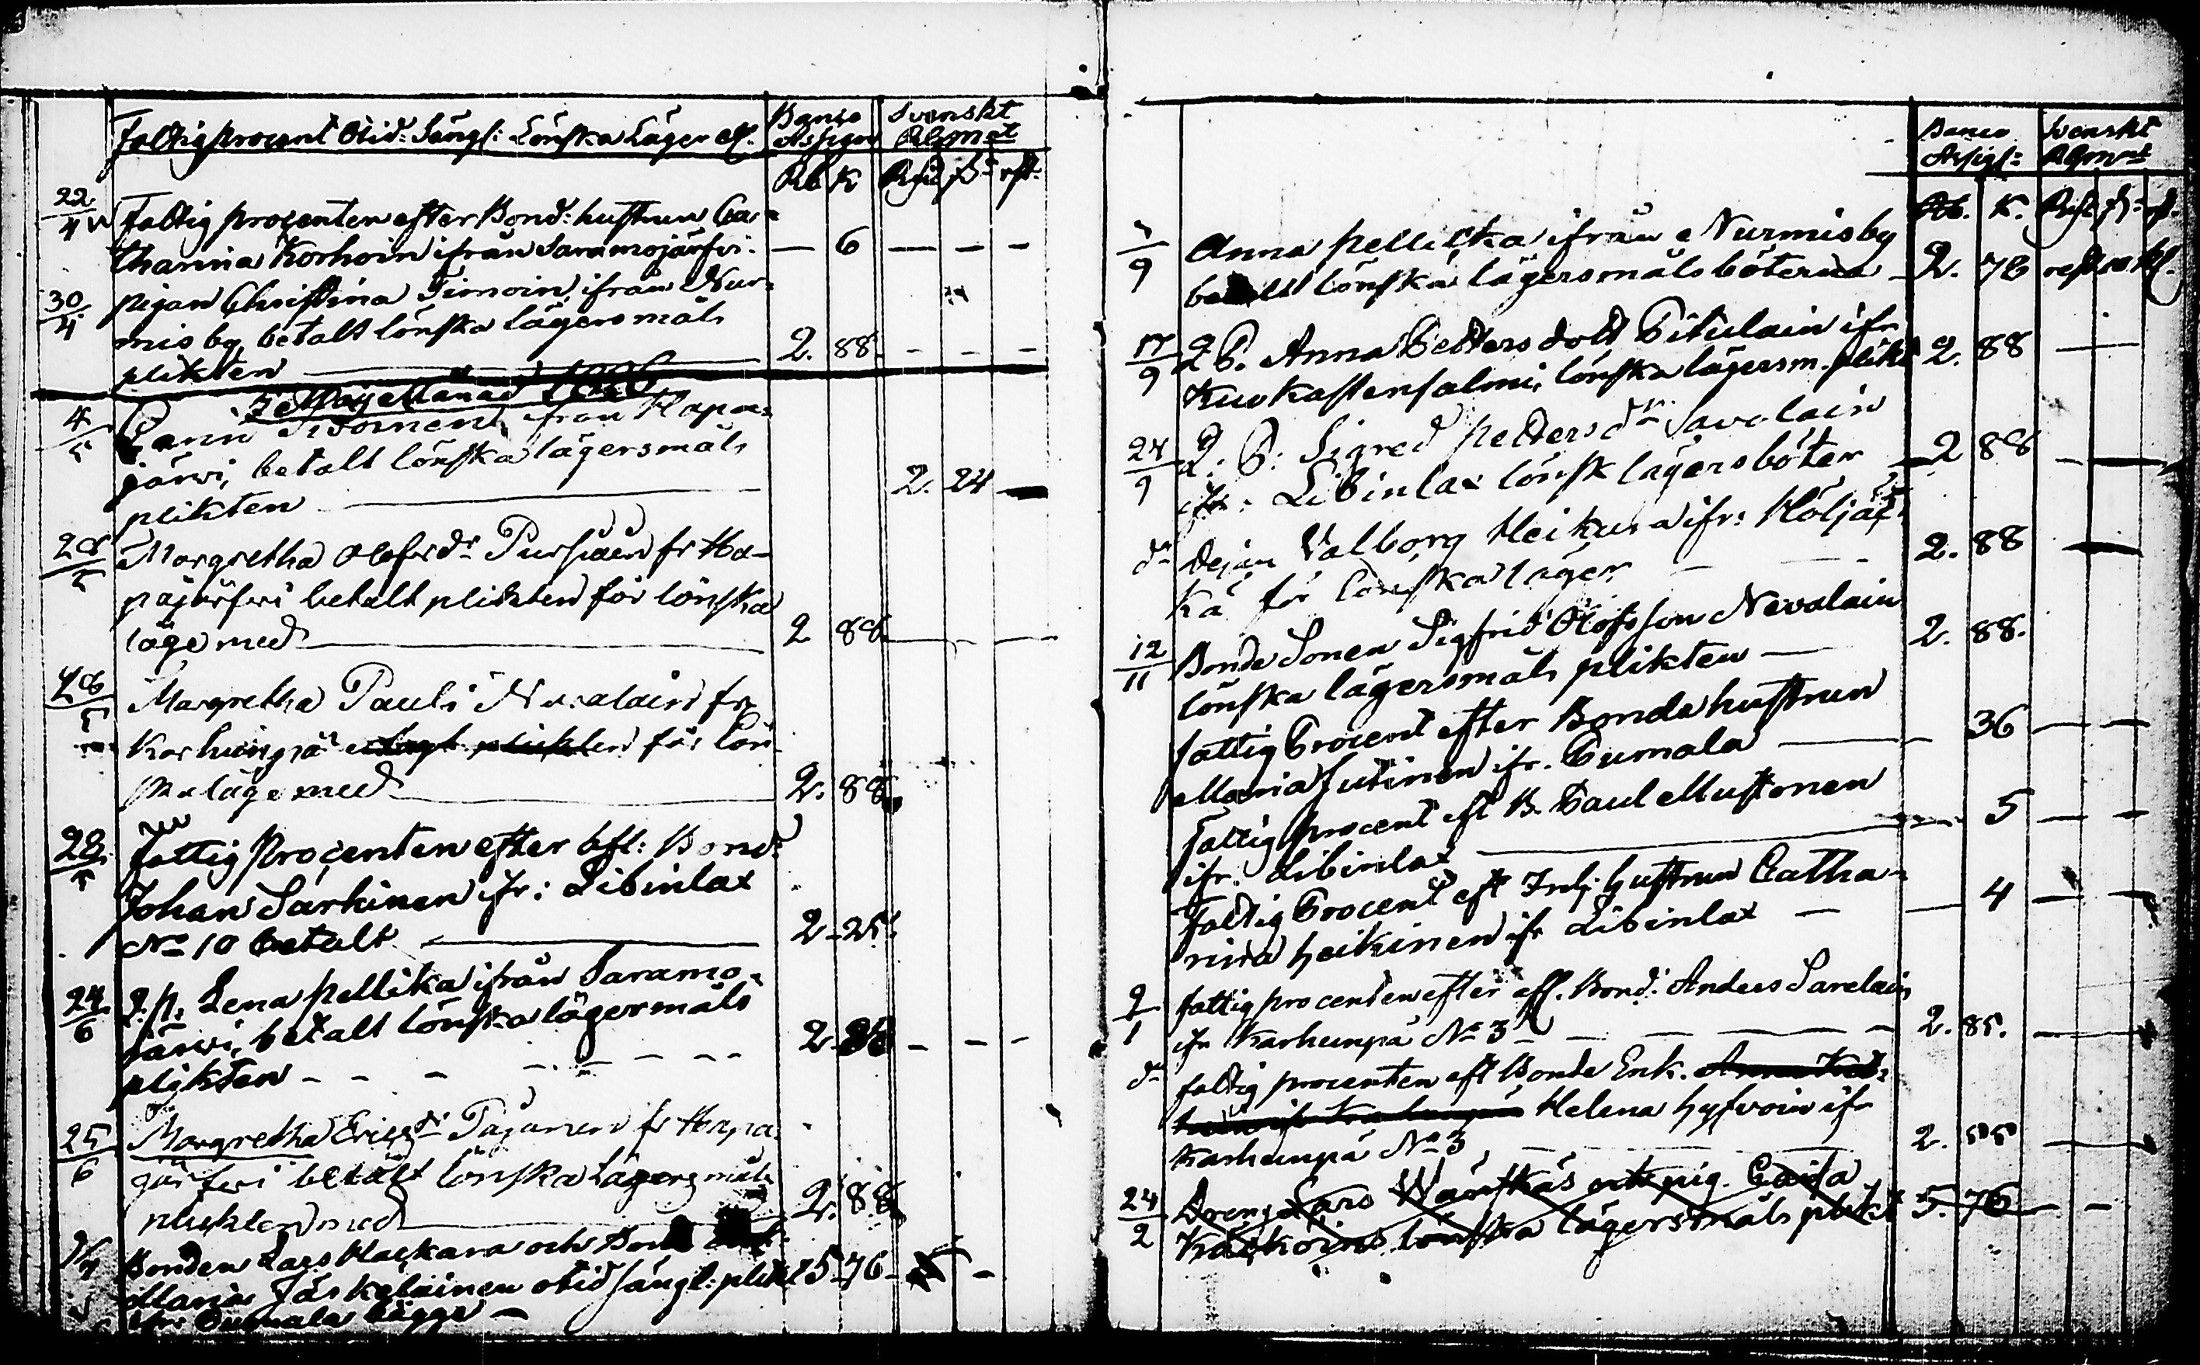 Fattigprocent Otid: Sängl: Lönska Läger etc. Banco Assign Svenskt Rgsmnt
Rb K Rksd ß rst.
22/4 Fattig procenten efter Bond: hustrun Ca-
tharina Korhoin ifrån Saramojärfvi. — 6 — — —
30/4 pigan Christina Timoin, ifrån Nur-
mis by betalt lönska lägersmåls
plikten — 2. 88. - - -
Maije Månad
4/5 ifrån Hapa-
järvi, betalt lönska lägersmåls
plikten — 2. 24 —
28/5 Margretha Olofsdr Pursiain fr Ha-
pajärfvi betalt plikten för lönska
läge med — 2 88. — — —
28/5 Margretha Pauls Nevalain fr
Karhunpä plikten för lön
ska läge med — 2. 88
28/5 fattig Procenten efter afl: Bond:
Johan Särkinen ifr: Libinlax
No 10 betalt — 2 - 25.
24/6 Q. p. Lena Pellika ifrån Saramo-
järvi, betalt lönska lägersmåls
plikten - - - 2 88 - - -
25/6 Margretha Ericsdr Pajunen fr Hapa-
järfvi betalt lönska Lägersmåls
plickten med — 2. 88
Bonden Lars Hackara och Bond
Maria Jäskelainen otid sängl: plikt 15 - 76 -
ifr: Pumala bägge —
Banco Assigt: Svenskt Rgmnt
Rb. K. Rksd ß rst.
/9 Anna Pellicka ifrån Nurmis by
betalt lönska lägersmåls böterna — 2. 76
17/9 Q P. Anna Petters dott Pitulain ifr
Kuokastensalmi, lönska lägersm. plikt 2. 88 —
24/9 Q: P: Sigred Petters dr Savolain
ifr: Libinlax lönsk lägersböter — 2 88 — —
do Pejan Valborg Heikura ifr: Höljäk-
kä för Lönska läger — 2. 88 —
12/11 Bonde Sonen Sigfrid Olofsson Nevalain
lönska lägersmåls plikten — 2. 88.
fattig Procent efter Bonde hustrun
Maria Jutinen ifr. Pumala — 36 — —
Fattig procent eft B. Paul Mustonen
ifr. Libinlax — 5 — —
Fattig Procent eft Inh: hustrun Catha-
rina Heikinen ifr Libinlax — 4 — —
2/1 fattig procenten efter afl. Bond: Anders Savelain
ifr Karhunpä No 3 — 2. 85. —
do fattig procenten eft Bonde Enk.
Helena Hyfvoin ifr
Karhunpä No 3 — 2. 55 —
24/2 Dreng Lars Wänskäs och pig. Caisa
Käckoins lönska lägersmåls plikt 5. 76 — —